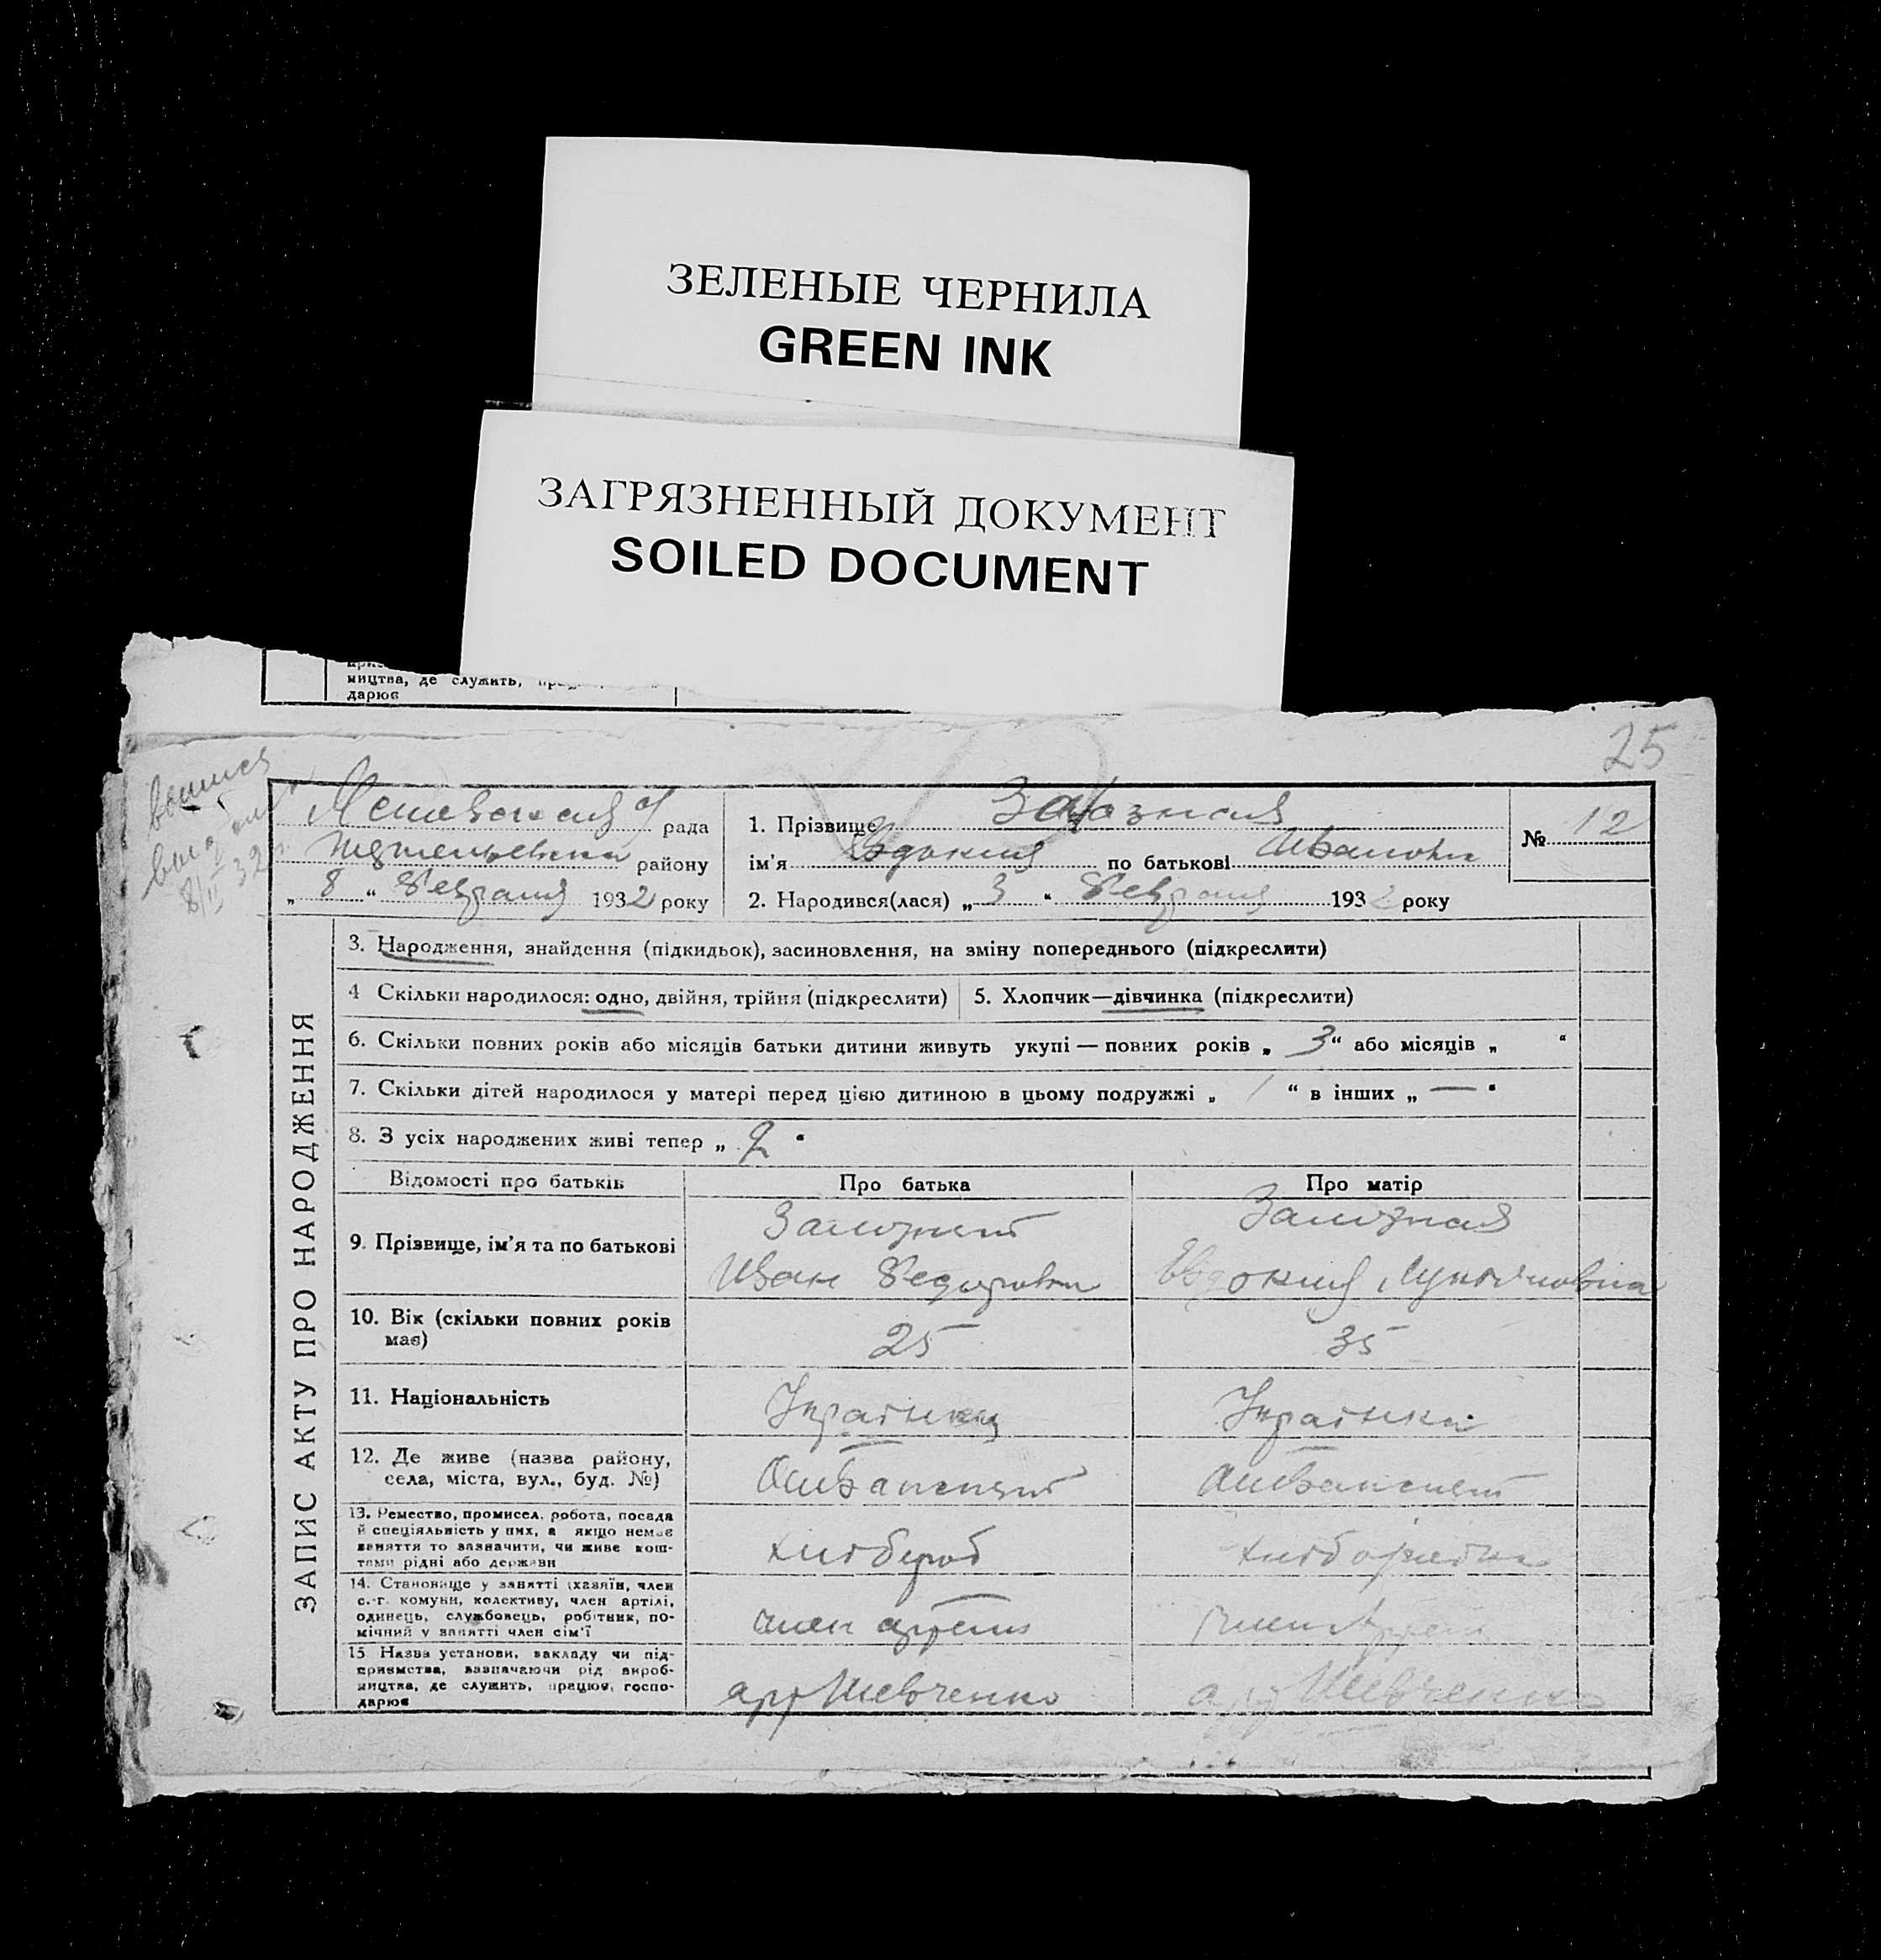 ЗЕЛЕНЫЕ ЧЕРНИЛА
GREEN INK
ЗАГРЯЗНЕННЫЙ ДОКУМЕНТ
SOILED DOCUMENT
ництва, де служить,
дарює
25
рада
району
„ 8 “ Февраля 1932 року
1. Прізвище
ім’я Евдокия по батькові Ивановн
2. Народився(лася) „ 3 “ Февраля 1932 року
№ 12
8/II 32
ЗАПИС АКТУ ПРО НАРОДЖЕННЯ
3. Народження, знайдення (підкидьок), засиновлення, на зміну попереднього (підкреслити)
4 Скільки народилося: одно, двійня, трійня (підкреслити)
5. Хлопчик—дівчинка (підкреслити)
6. Скільки повних років або місяців батьки дитини живуть укупі — повних років „ 3 “ або місяців „ “
7. Скільки дітей народилося у матері перед цією дитиною в цьому подружжі „ 1 “ в інших „ — “
8. З усіх народжених живі тепер „ 2 “
Відомості про батьків Про батька Про матір
9. Прізвище, ім’я та по батькові
Иван Федорович
Евдокия
10. Вік (скільки повних років має) 25 35
11. Національність
12. Де живе (назва району,
села, міста, вул., буд. №)
13. Ремество, промисел, робота, посада
й спеціяльність у них, а якщо немає
заняття то зазначити, чи живе кош-
тами рідні або держави
хлібороб
14. Становище у занятті (хазяїн, член
с.-г. комуни, колективу, член артілі,
одинець, службовець, робітник, по-
мічний у занятті член сім’ї
член артели
15 Назва установи, закладу чи під-
приємства, зазначаючи рід вироб-
ництва, де служить, працює, госпо-
дарює
арт Шевченко арт Шевченко